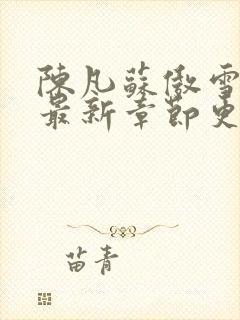 陳凡蘇傲雪
最新章節更
苗青